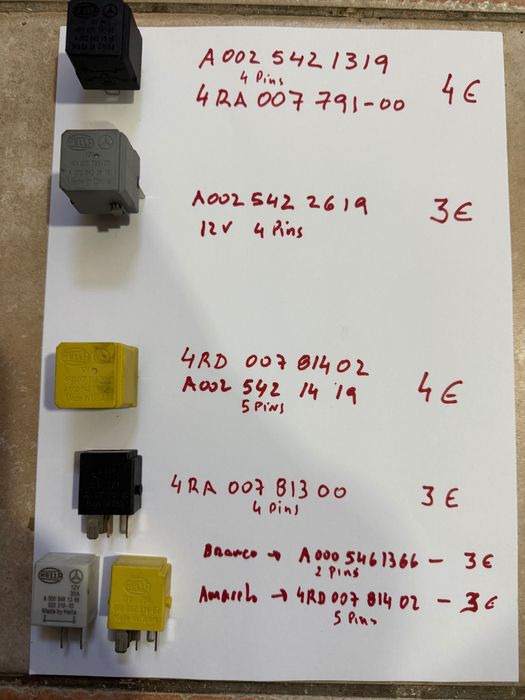 A002 542 1319
4 Pins
4RA 007 791-00
4€
HELLA
12V
Made in China
A002 542 2619
12V 4 Pins
3€
4RD 007 814 02
A002 542 14 19
5 Pins
4€
4RA 007 813 00
4 Pins
3€
Branco → A000 5461366 - 3€
2 Pins
Amarelo → 4RD 007 814 02 - 3€
5 Pins
HELLA
12V
30A
A 000 546 13 66
Made by Hella